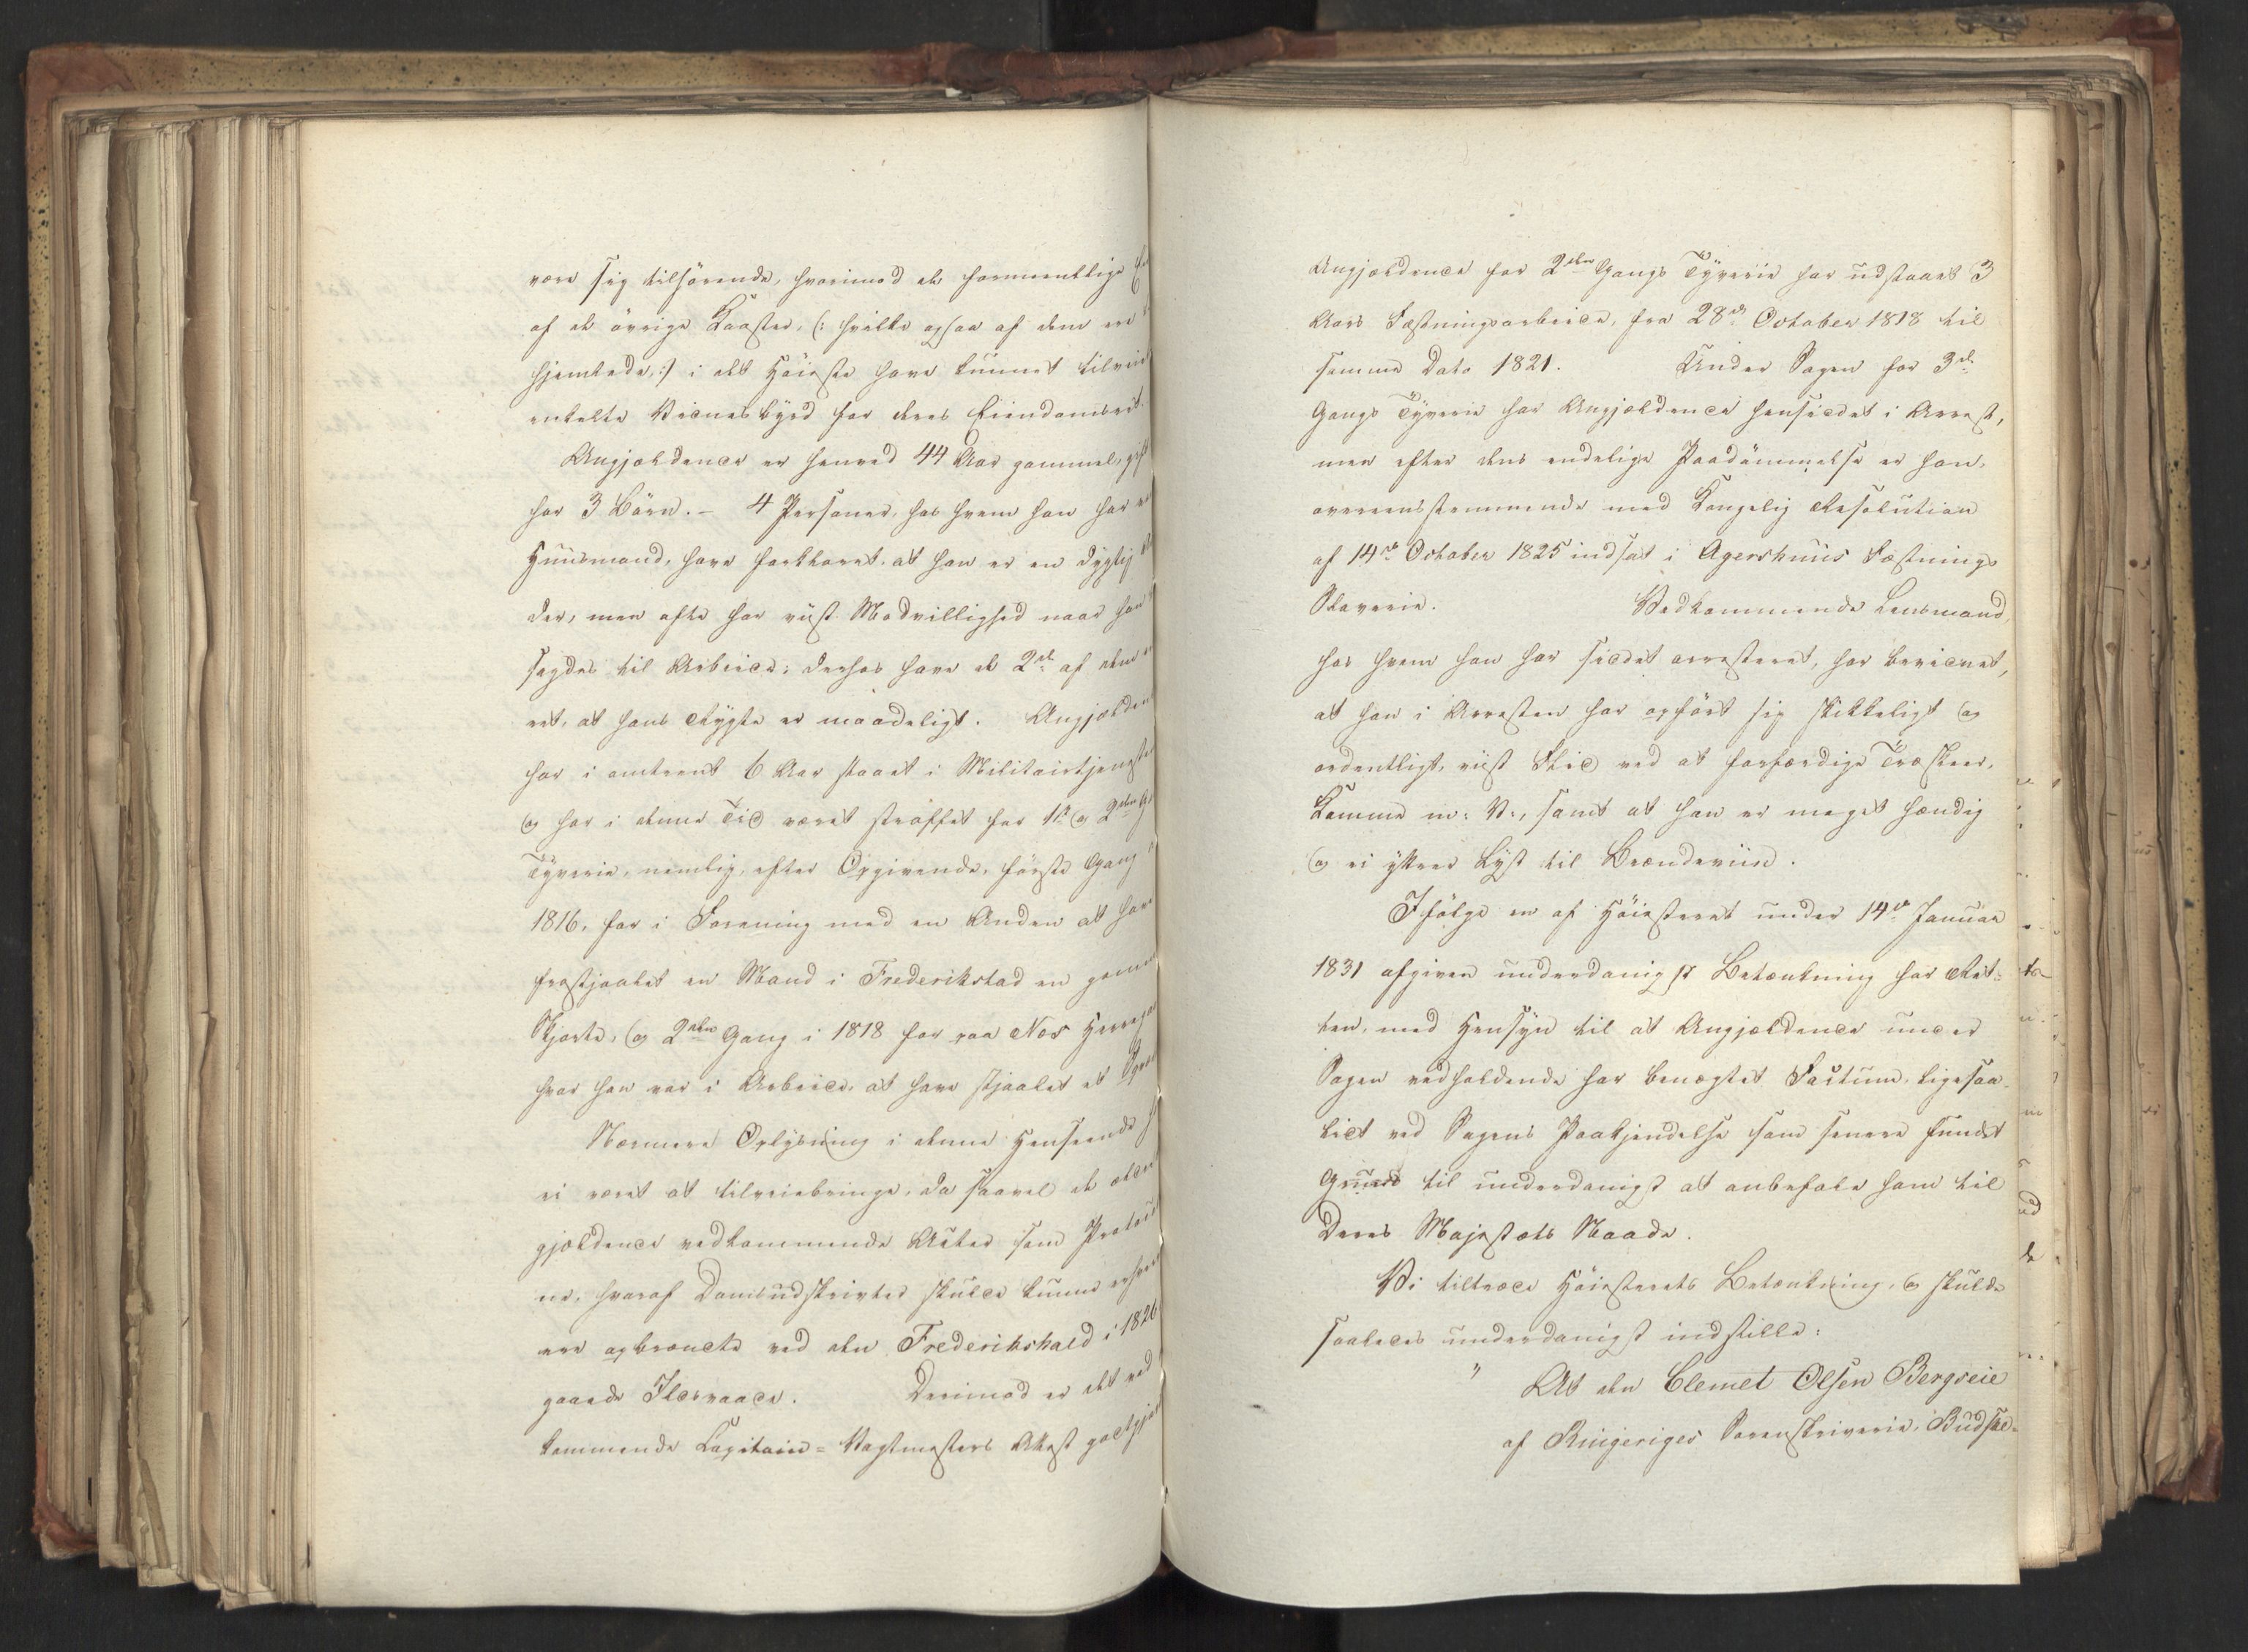 være sig tilhörende, hvorimod de formeentlige
af de övrige Kaaster, (: hvilke ogsaa af dem ere
hjemlede,:) i det Höieste have kunnet tilveie
enkelte Vidnesbyrd for deres Eiendomsret.
Angjeldende er henved 44 Aar gammel, gift
har 3 Börn. – 4 Personer, hos hvem han har
Huusmand, have forklaret, at han er en dygtig
der, men ofte har viist Modvillighed naar han
sagdes til Arbeide; derhos have de 2de af dem
ret, at hans Rygte er maadeligt. Angjelden
har i omtrent 6 Aar staaet i Militairtjeneste
og har i denne Tid været straffet for 1ste og 2den G
Tyverie, nemlig, efter Opgivende, förste Gang
1816, for i Forening med en Anden at have
frastjaalet en Mand i Frederikstad en
Skjorte, og 2den Gang i 1818 for paa Næs Herregaa
hvor han var i Arbeide, at have stjaalet et
Nærmere Oplysning i denne Henseende
ei været at tilveiebringe, da saavel de
gjeldende vedkommende Acter som Protoco
ne, hvoraf Domsudskrivter skulde kunne erhver
ere opbrændte ved den Frederikshald i 1826
gaaede Ildsvaade. Derimod er det ved
kommende Capitain-Vagtmesters Attest godtgjor
Angjeldende for 2den Gangs Tyverie har udstaaet 3
Aars Fæstningsarbeide, fra 28de October 1818 til
samme Dato 1821. Under Sagen for 3die
Gangs Tyverie har Angjeldende hensiddet i Arrest,
men efter dens endelige Paadömmelse er han,
overeensstemmende med Kongelig Resolution
af 14de October 1825 indsat i Agershuus Fæstnings
Slaverie. Vedkommende Lensmand,
hos hvem han har siddet arresteret, har bevidnet,
at han i Arresten har opfört sig skikkeligt og
ordentligt, viist Flid ved at forfærdige Træskeer,
Kamme m: V:, samt at han er meget hændig
og ei yttrer Lyst til Brændeviin.
Ifölge en af Höiesteret under 14de Januar
1831 afgiven underdanigst Betænkning har Ret-
ten, med Hensyn til at Angjeldende under
Sagen vedholdende har benægtet Factum, ligesaa-
lidt ved Sagens Paakjendelse som senere fundet
Grund til underdanigst at anbefale ham til
Deres Majestæts Naade.
Vi tiltræde Höiesterets Betænkning, og skulde
saaledes underdanigst indstille:
" At den Clemet Olsen Bergseie
af Ringeriges Sorenskriverie, Budske-